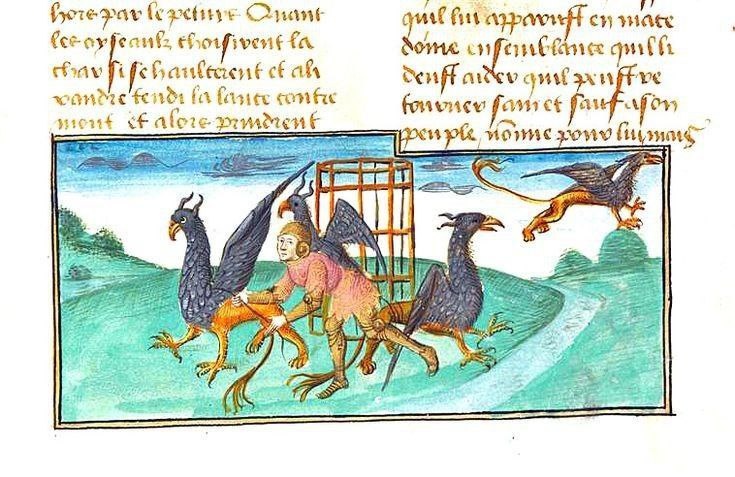 hors par le Quant
les oyseaulx choisirent la
char si se haulcerent et ali
xandre tendi la lance contre
mont et alors prindrent
quil lui apparust en mace
doine en semblance quil li
deust aider quil peust re
tourner sain et sauf a son
peuple nõme pour lui mais